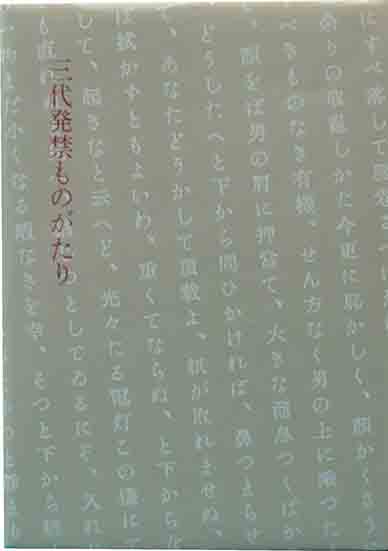 にすべ落して
余りの取乱しかた今更に恥かしく、顔かくさうに
べきものなき有様、せん方なく男の上に
、顔をば男の肩に押當て、大きな溜息つくばか
どうしたへと下から問ひかければ、鼻つまらせ
て、あなたどうかして頂戴よ、紙が取れませぬ、
ば拭かずともよいわ、重くてならぬ、と下から
して、起きなと云へど、光々たる電灯この様に
三代発禁ものがたり
つとしてゐるにぞ、入れ
物まだ小くなる暇なきを幸、そつと下から